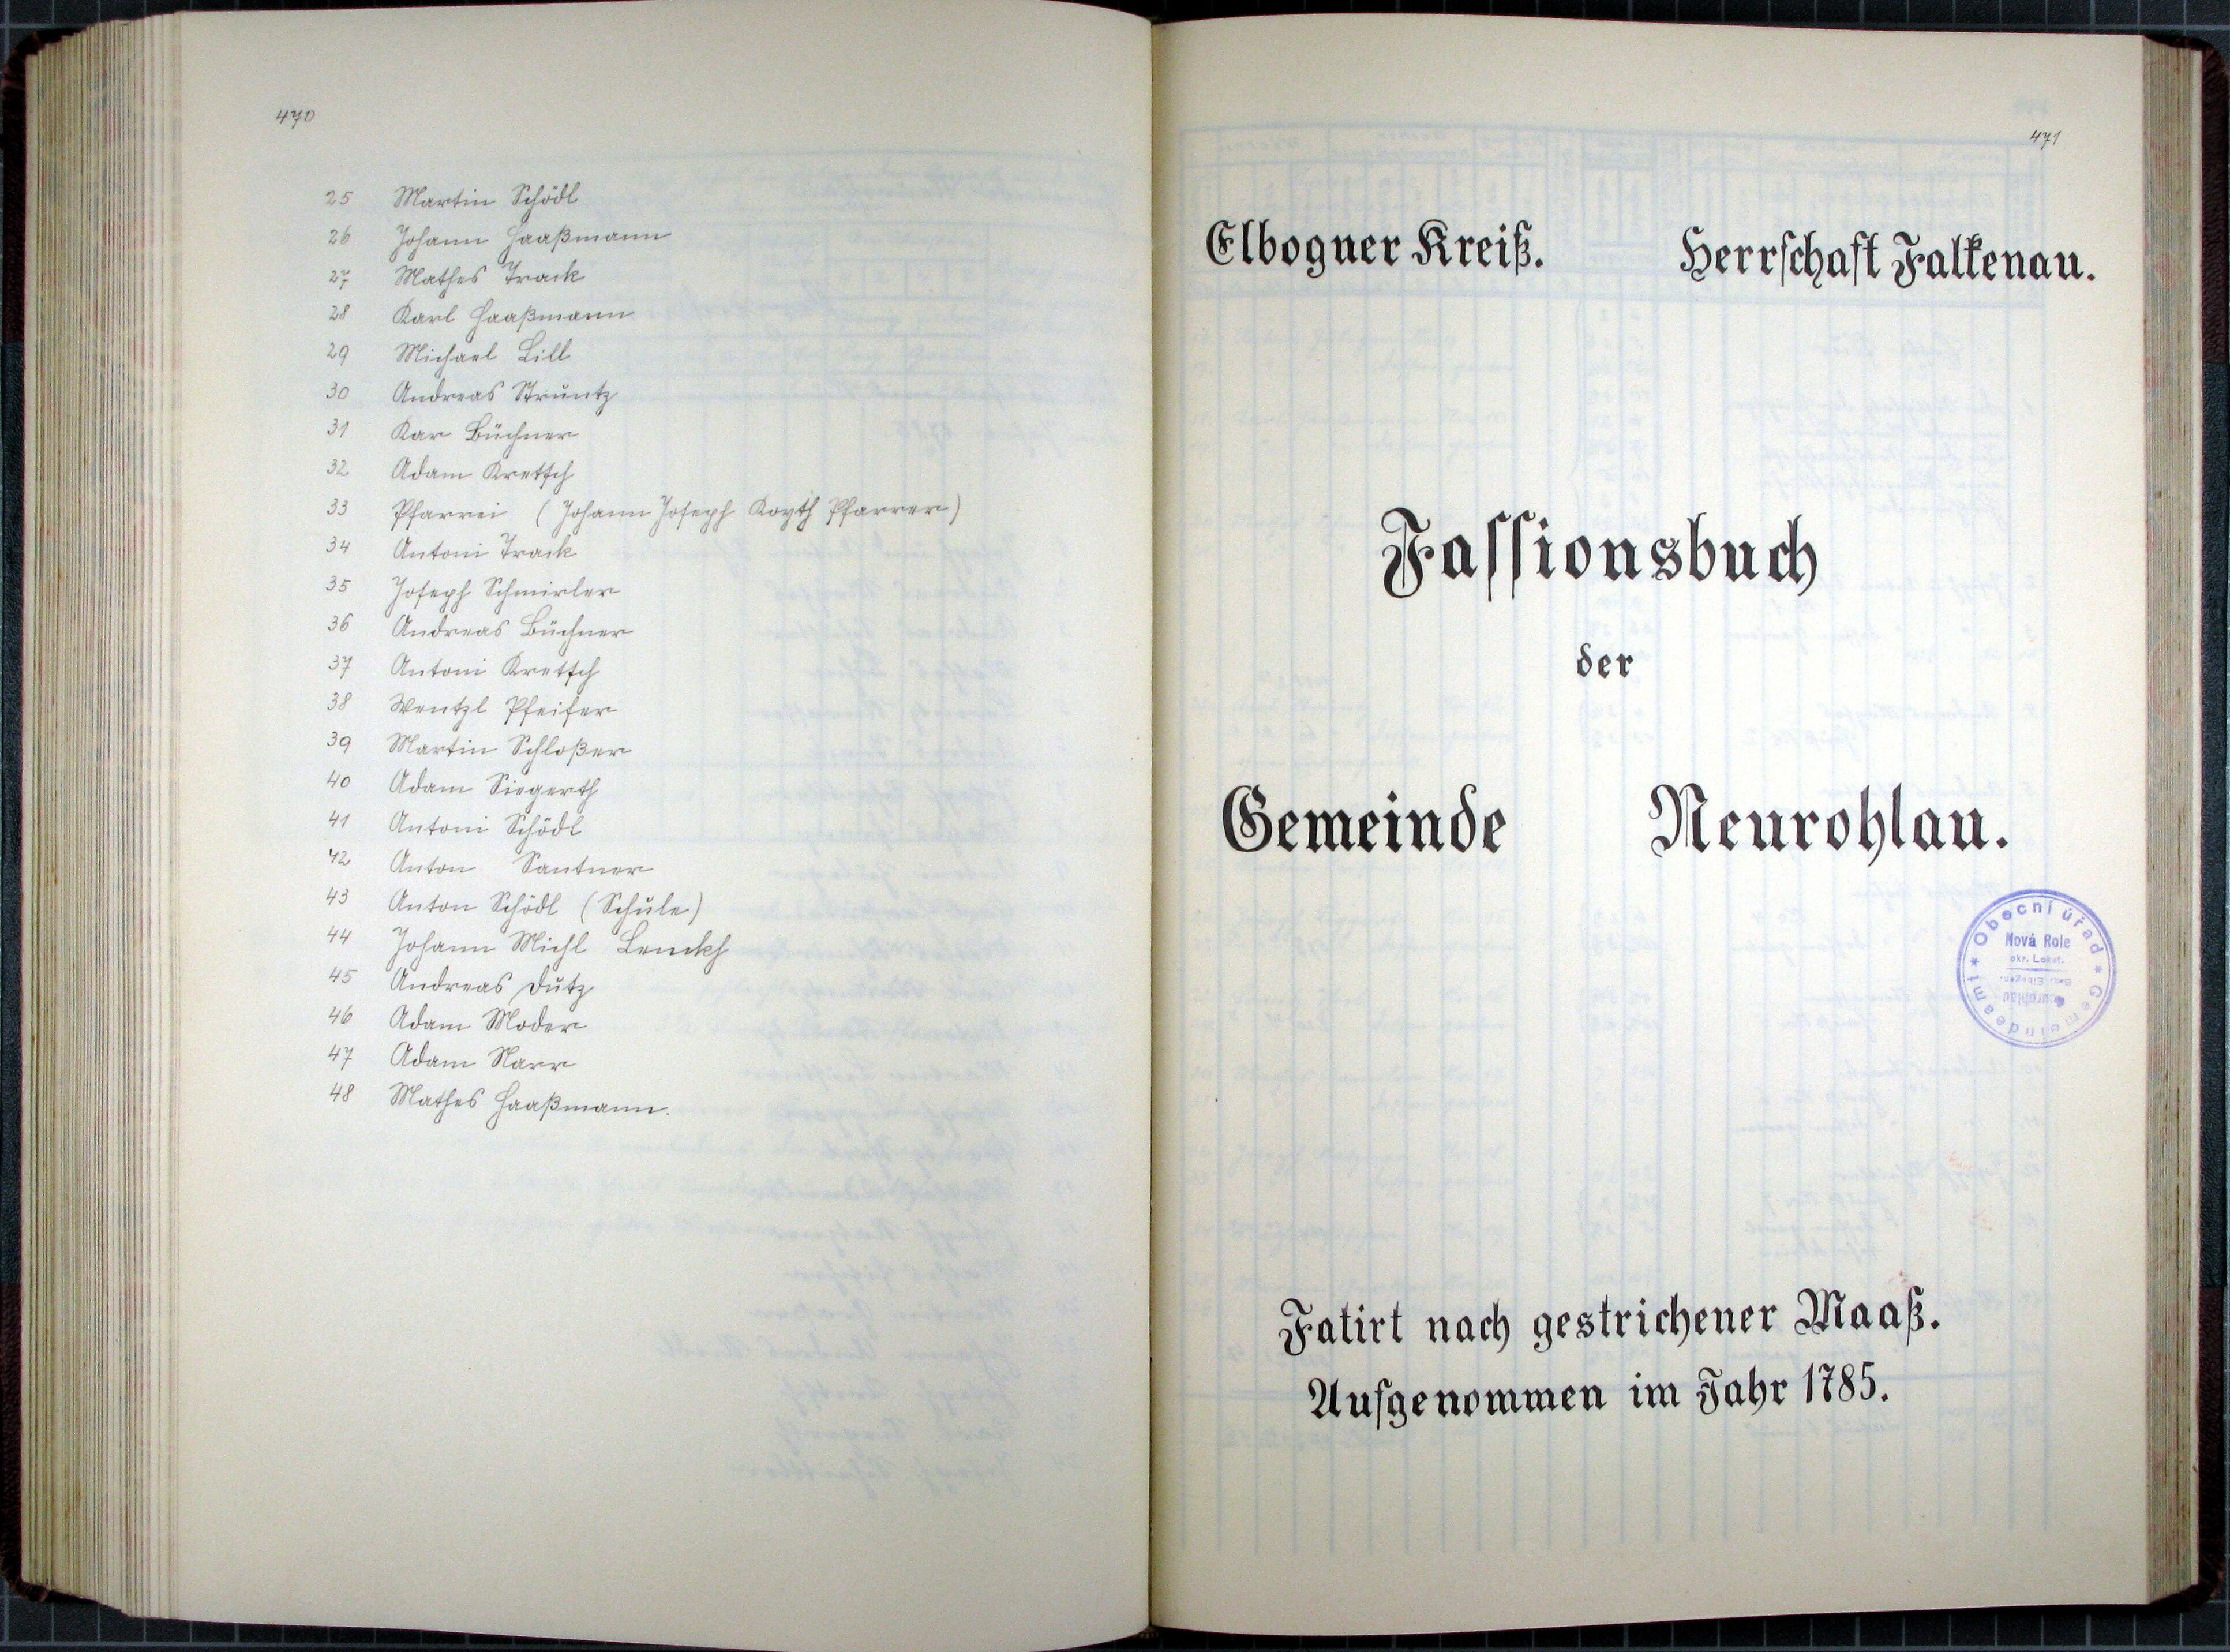 470
25 Martin Schödl
26 Johann Haaßmann
27 Mathes Track
28 Karl Haaßmann
29 Michael Lill
30 Andreas Struntz
31 Kar Büchner
32 Adam Kretsch
33 Pfarrei (Johann Joseph Koyth Pfarrer)
34 Antoni Track
35 Joseph Schmirler
36 Andreas Büchner
37 Antoni Kretsch
38 Wentzl Pfeifer
39 Martin Schloßer
40 Adam Siegerth
41 Antoni Schödl
42 Anton Santner
43 Anton Schödl (Schule)
44 Johann Michl Lenckh
45 Andreas Dutz
46 Adam Moder
47 Adam Narr
48 Mathes Haaßmann.
471
Elbogner Kreiß. Herrschaft Falkenau.
Fassionsbuch
der
Gemeinde Neurohlau.
Obecní úřad * Gemeindeamt *
Nová Role
okr. Loket.
Bez. Elbogen.
Neurohlau
Fatirt nach gestrichener Maaß.
Aufgenommen im Jahr 1785.